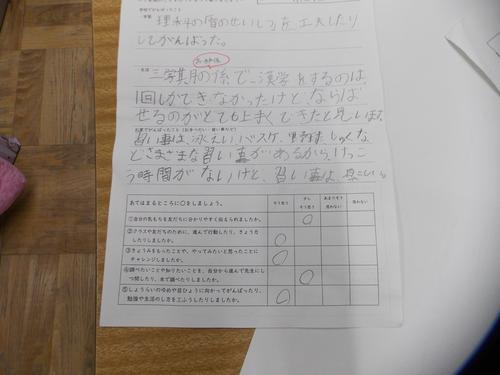 学校でがんばったこと
・学習
理科の
のせいしつを 工夫したり
してがんばった。
・生活
二学期の係で
をするのは、
1回しかできなかったけど、ならば
せるのがとても上手くできたと思います。
習い事は、水えい、バスケ、
どさまざまな習い事があるから、けっこ
う時間がないけど、習い事は
あてはまるところに○をしましょう。
そう思う
少しそう思う
あまりそう思わない
思わない
①自分の気もちを友だちに分かりやすく伝えられましたか。
②クラスや友だちのために、進んで行動したり、きょう力
したりしましたか。
③きょうみをもったことや、やってみたいと思ったことに
チャレンジしましたか。
④調べたいことや知りたいことを、自分から進んで先生にし
つ問したり、本で調べたりしましたか。
⑤しょうらいのゆめや目ひょうに向かってがんばったり、
勉強や生活のし方を工ふうしたりしましたか。